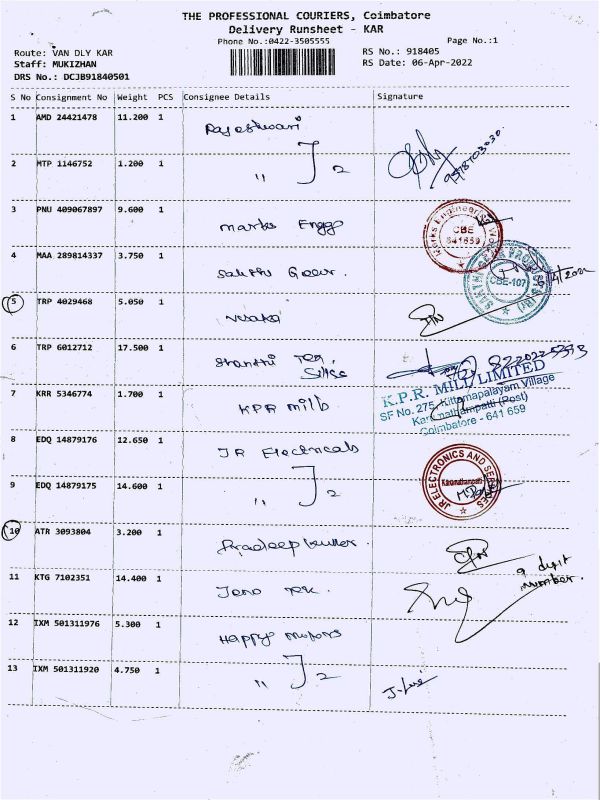 THE PROFESSIONAL COURIERS, Coimbatore
Delivery Runsheet - KAR
Phone No.:0422-3505555
Page No.:1
Route: VAN DLY KAR
RS No.: 918405
Staff: MUKIZHAN
RS Date: 06-Apr-2022
DRS No.: DCJB91840501
S No Consignment No Weight PCS Consignee Details Signature
1 AMD 24421478 11.200 1 Rajeshwari
2 MTP 1146752 1.200 1 " 2
3 PNU 409067897 9.600 1 Marks Engg
CBE
641659
4 MAA 289814337 3.750 1 Sakthi Gear.
CBE-107
5 TRP 4029468 5.050 1
6 TRP 6012712 17.500 1 Shanthi
7 KRR 5346774 1.700 1 KPR mill
K.P.R. MILL LIMITED
SF No. 275, Kittampalayam Village
Karumathampatti (Post)
Coimbatore - 641 659
8 EDQ 14879176 12.650 1 JR Electricals
JR ELECTRONICS AND SERVICES
Karumathampatti
9 EDQ 14879175 14.600 1 " 2
10 ATR 3093804 3.200 1
9 digit
number.
11 KTG 7102351 14.400 1 Jeno Tek.
12 IXM 501311976 5.300 1 Happy Motors
13 IXM 501311920 4.750 1 " 2